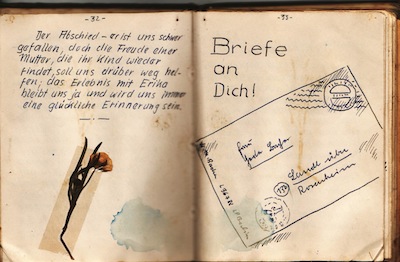 -32-
Der Abschied - er ist uns schwer
gefallen, doch die Freude einer
Mutter, die ihr Kind wieder
findet, soll uns drüber weg hel-
fen; das Erlebnis mit Erika
bleibt uns ja und wird uns immer
eine glückliche Erinnerung sein.
-33-
Briefe
an
Dich!
Frau
Landl über
Rosenheim